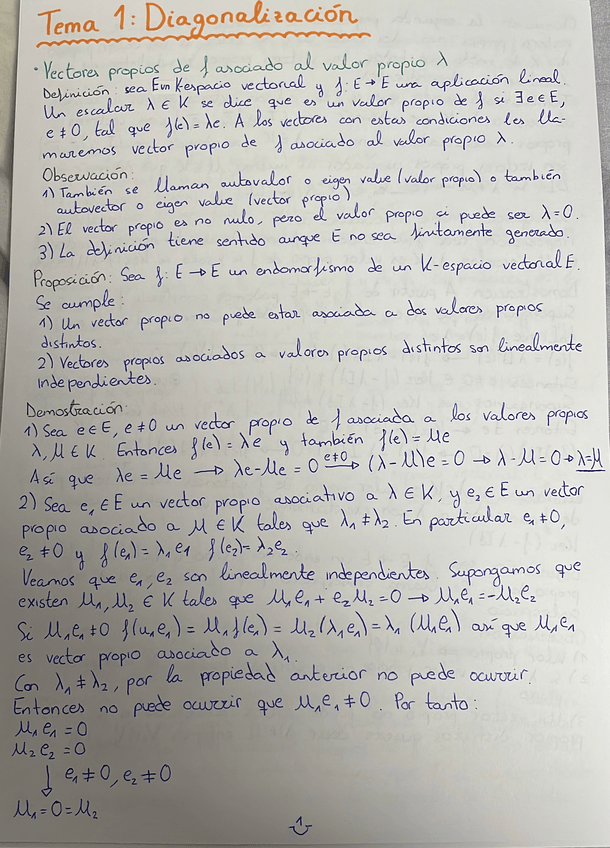 Tema 1: Diagonalización
· Vectores propios de f asociado al valor propio λ
Definición: sea E un K-espacio vectorial y f: E → E una aplicación lineal.
Un escalar λ ∈ K se dice que es un valor propio de f si ∃ e ∈ E,
e ≠ 0, tal que f(e) = λe. A los vectores con estas condiciones les lla-
maremos vector propio de f asociado al valor propio λ.
Observación:
1) También se llaman autovalor o eigen value (valor propio) o también
autovector o eigen value (vector propio)
2) El vector propio es no nulo, pero el valor propio si puede ser λ=0.
3) La definición tiene sentido aunque E no sea finitamente generado.
Proposición: Sea f: E → E un endomorfismo de un K-espacio vectorial E.
Se cumple:
1) Un vector propio no puede estar asociada a dos valores propios
distintos.
2) Vectores propios asociados a valores propios distintos son linealmente
independientes.
Demostración:
1) Sea e∈E, e≠0 un vector propio de f asociada a los valores propios
λ, μ ∈ K. Entonces f(e) = λe y también f(e) = μe
Así que λe = μe → λe-μe = 0 e≠0→ (λ-μ)e = 0 → λ-μ=0 → λ=μ
2) Sea e₁ ∈ E un vector propio asociativo a λ ∈ K, y e₂ ∈ E un vector
propio asociado a μ ∈ K tales que λ₁ ≠ λ₂. En particular e₁ ≠ 0,
e₂ ≠ 0 y f(e₁) = λ₁e₁ f(e₂) = λ₂e₂.
Veamos que e₁, e₂ son linealmente independientes. Supongamos que
existen μ₁, μ₂ ∈ K tales que μ₁e₁ + e₂μ₂ = 0 → μ₁e₁ = -μ₂e₂
Si μ₁e₁ ≠ 0 f(u₁e₁) = μ₁f(e₁) = μ₂(λ₁e₁) = λ₁(μ₁e₁) así que μ₁e₁
es vector propio asociado a λ₁.
Con λ₁ ≠ λ₂, por la propiedad anterior no puede ocurrir.
Entonces no puede ocurrir que μ₁e₁ ≠ 0. Por tanto:
μ₁e₁ = 0
μ₂e₂ = 0
↓ e₁ ≠ 0, e₂ ≠ 0
μ₁ = 0 = μ₂
1